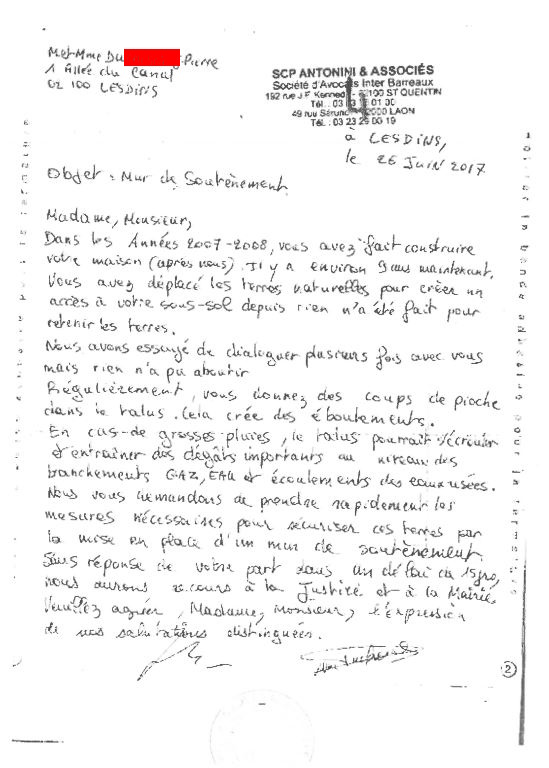 M et Mme Du Pierre
1 Allée du Canal
02 100 LESDINS
SCP ANTONINI & ASSOCIÉS
Société d'Avocats Inter Barreaux
192 rue J.F. Kenned 100 ST QUENTIN
Tél. : 03 01 00
49 rue Séruri 000 LAON
Tél. : 03 23 29 00 19
à LESDINS,
le 26 Juin 2017
Objet : Mur de Soutènement
Madame, Monsieur,
Dans les Années 2007-2008, vous avez fait construire
votre maison (après nous). Il y a environ 9 ans maintenant.
Vous avez déplacé les terres naturelles pour créer un
accès à votre sous-sol depuis rien n'a été fait pour
retenir les terres.
Nous avons essayé de dialoguer plusieurs fois avec vous
mais rien n'a pu aboutir
Régulièrement, vous donnez des coups de pioche
dans le talus. Cela crée des éboulements.
En cas de grosses pluies, le talus pourrait s'écrouler
et entraîner des dégâts importants au niveau des
branchements GAZ, EAU et écoulements des eaux usées.
Nous vous demandons de prendre rapidement les
mesures nécessaires pour sécuriser ces terres par
la mise en place d'un mur de soutènement.
Sans réponse de votre part dans un délai de 15 jrs,
nous aurons recours à la Justice et à la Mairie.
Veuillez agréer, Madame, Monsieur, l'expression
de nos salutations distinguées.
2